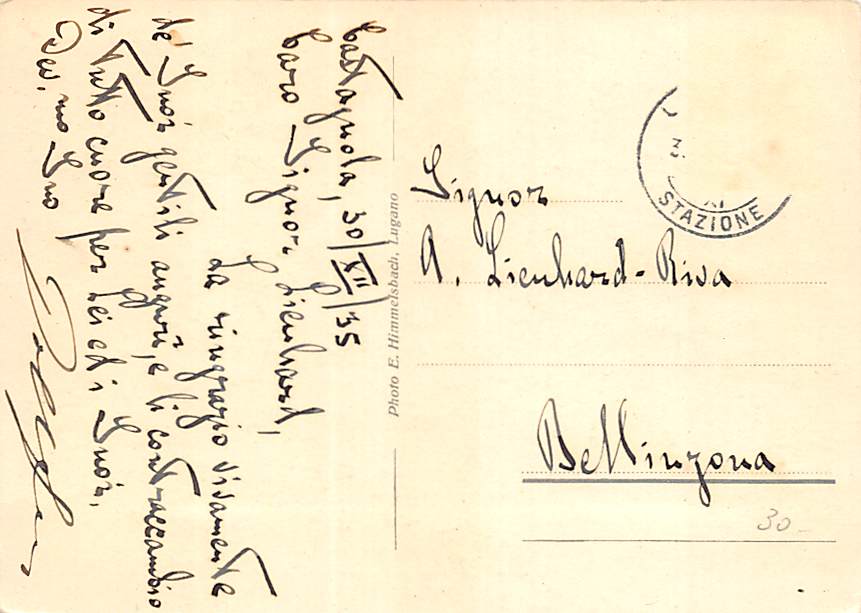 Castagnola, 30/XII/35
Caro Signor Lienhard,
La ringrazio vivamente
de' Suoi gentili auguri, e li contraccambio
di tutto cuore per Lei ed i Suoi.
Suo
Photo E. Himmelsbach, Lugano
STAZIONE
Signor
A. Lienhard-Riva
Bellinzona
30-